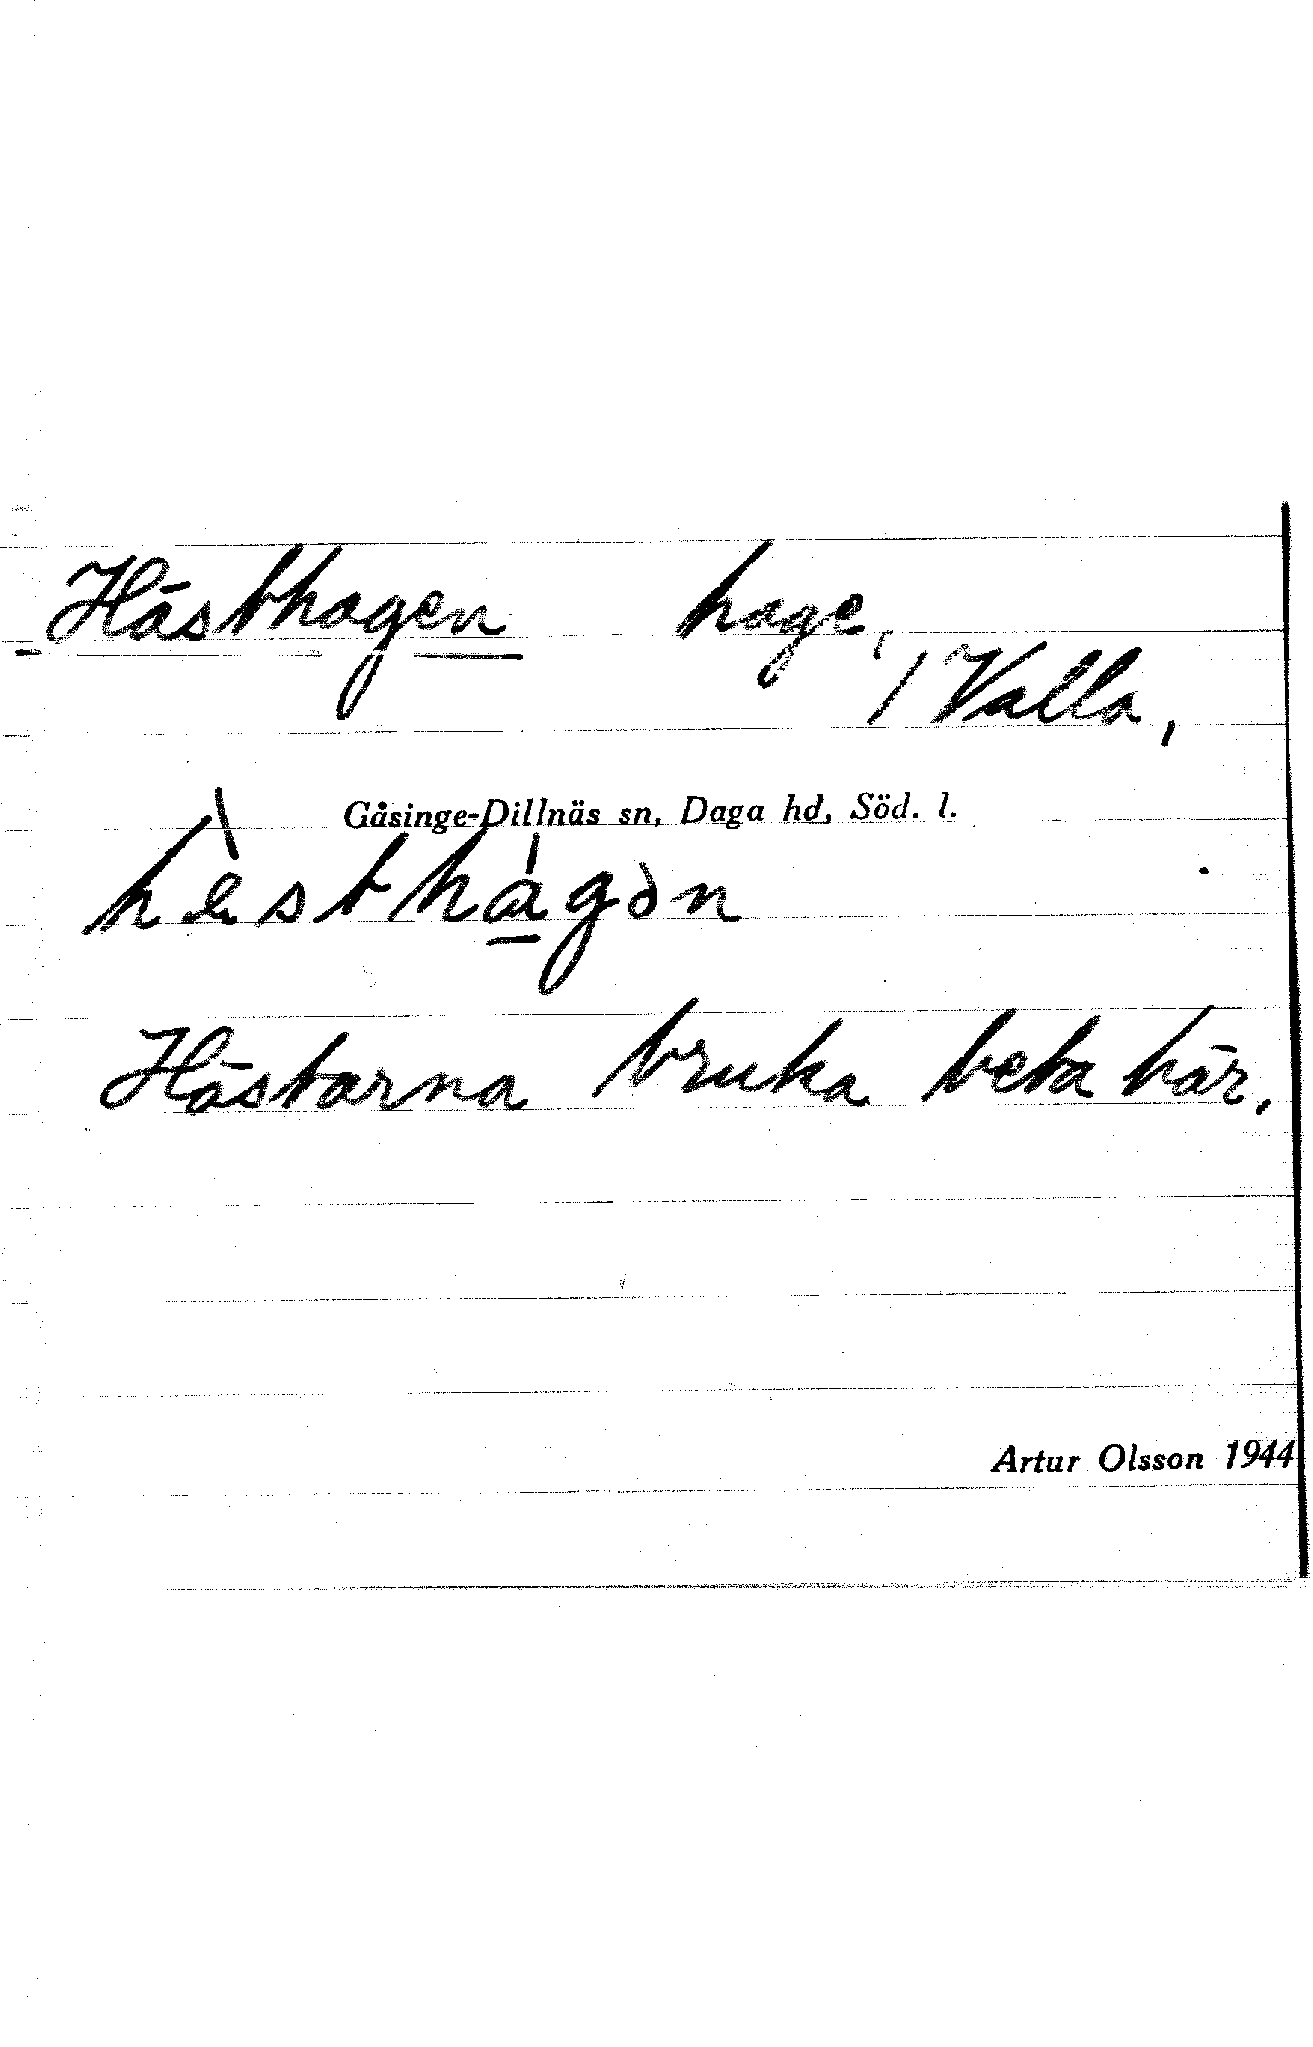 Hästhagen hage,
/ Valla,
Gåsinge-Dillnäs sn, Daga hd, Söd. l.
hὲsthɑ̠́gən
Hästarna bruka beta här.
Artur Olsson 1944